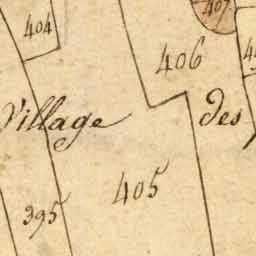 407
404
406
Village des
405
395